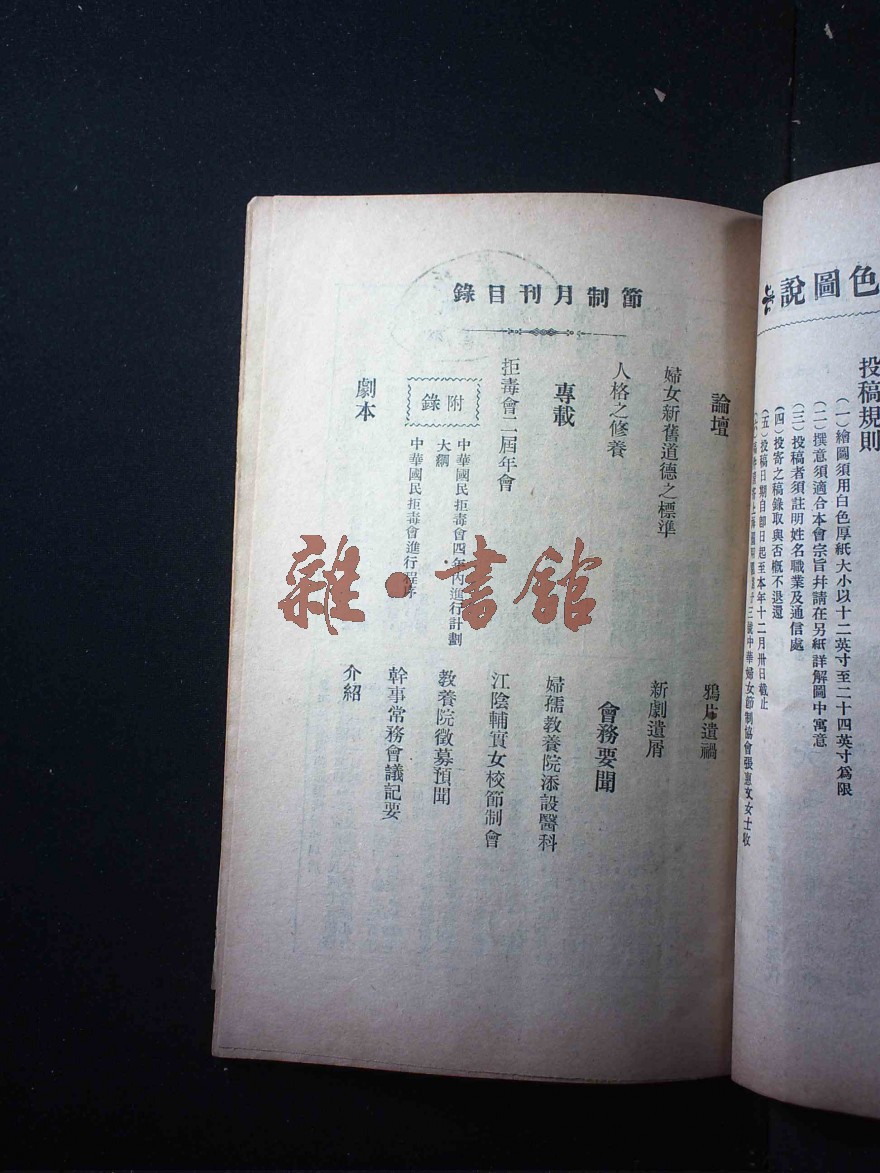 色圖說
投稿規則
(一)繪圖須用白色厚紙大小以十二英寸至二十四英寸爲限
(二)撰意須適合本會宗旨幷請在另紙詳解圖中寓意
(三)投稿者須註明姓名職業及通信處
(四)投寄之稿錄取與否概不退還
(五)投稿日期自卽日起至本年十二月卅日截止
三號中華婦女節制協會張惠文女士收
節制月刊目錄
論壇
婦女新舊道德之標準
人格之修養
專載
拒毒會二屆年會
附錄
中華國民拒毒會四年內進行計劃
大綱
中華國民拒毒會進行程序
劇本
鴉片遺禍
新劇遺屑
會務要聞
婦孺教養院添設醫科
江陰輔實女校節制會
教養院徵募預聞
幹事常務會議記要
介紹
雜·書館